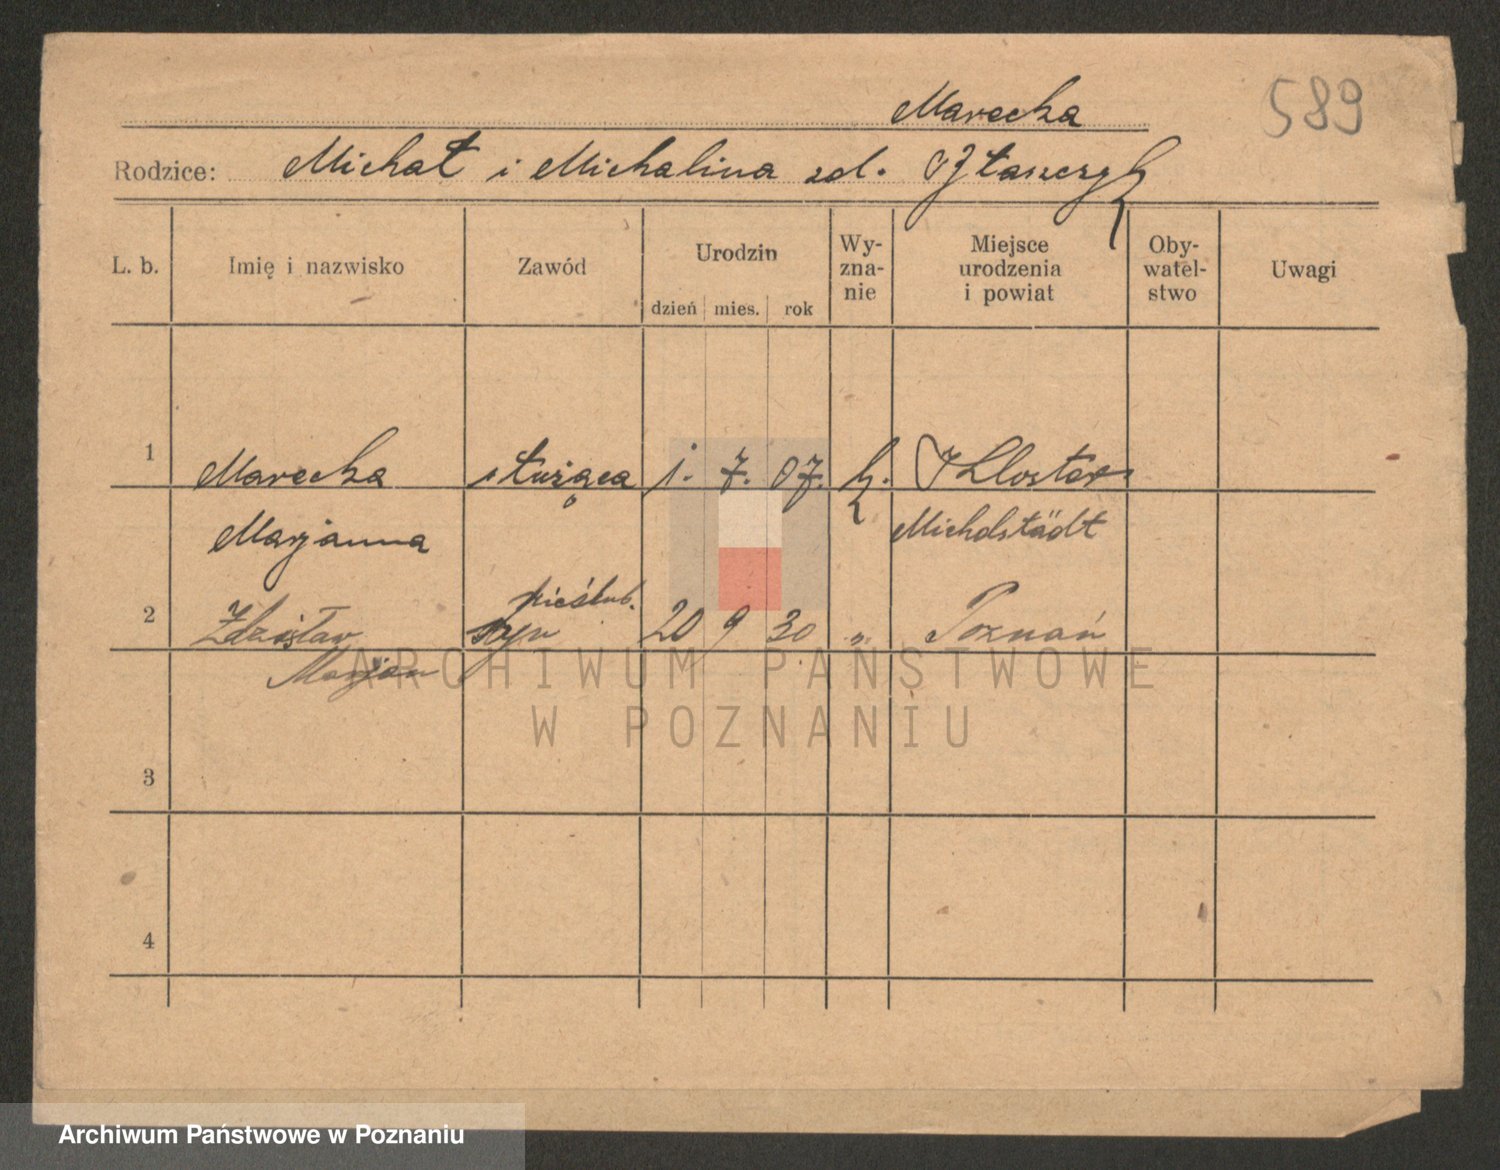 Marecka
589
Rodzice: Michał i Michalina zd.
L. b. Imię i nazwisko Zawód Urodzin dzień mies. rok Wy-zna-nie Miejsce urodzenia i powiat Oby-watel-stwo Uwagi
1 Marecka służąca 1. 7. 07. k. Kloster
Marjanna Micholstädt
nieślub.
2 Zdzisław syn 20 9 30 „ Poznań
Marjan
3
4
ARCHIWUM PAŃSTWOWE
W POZNANIU
Archiwum Państwowe w Poznaniu